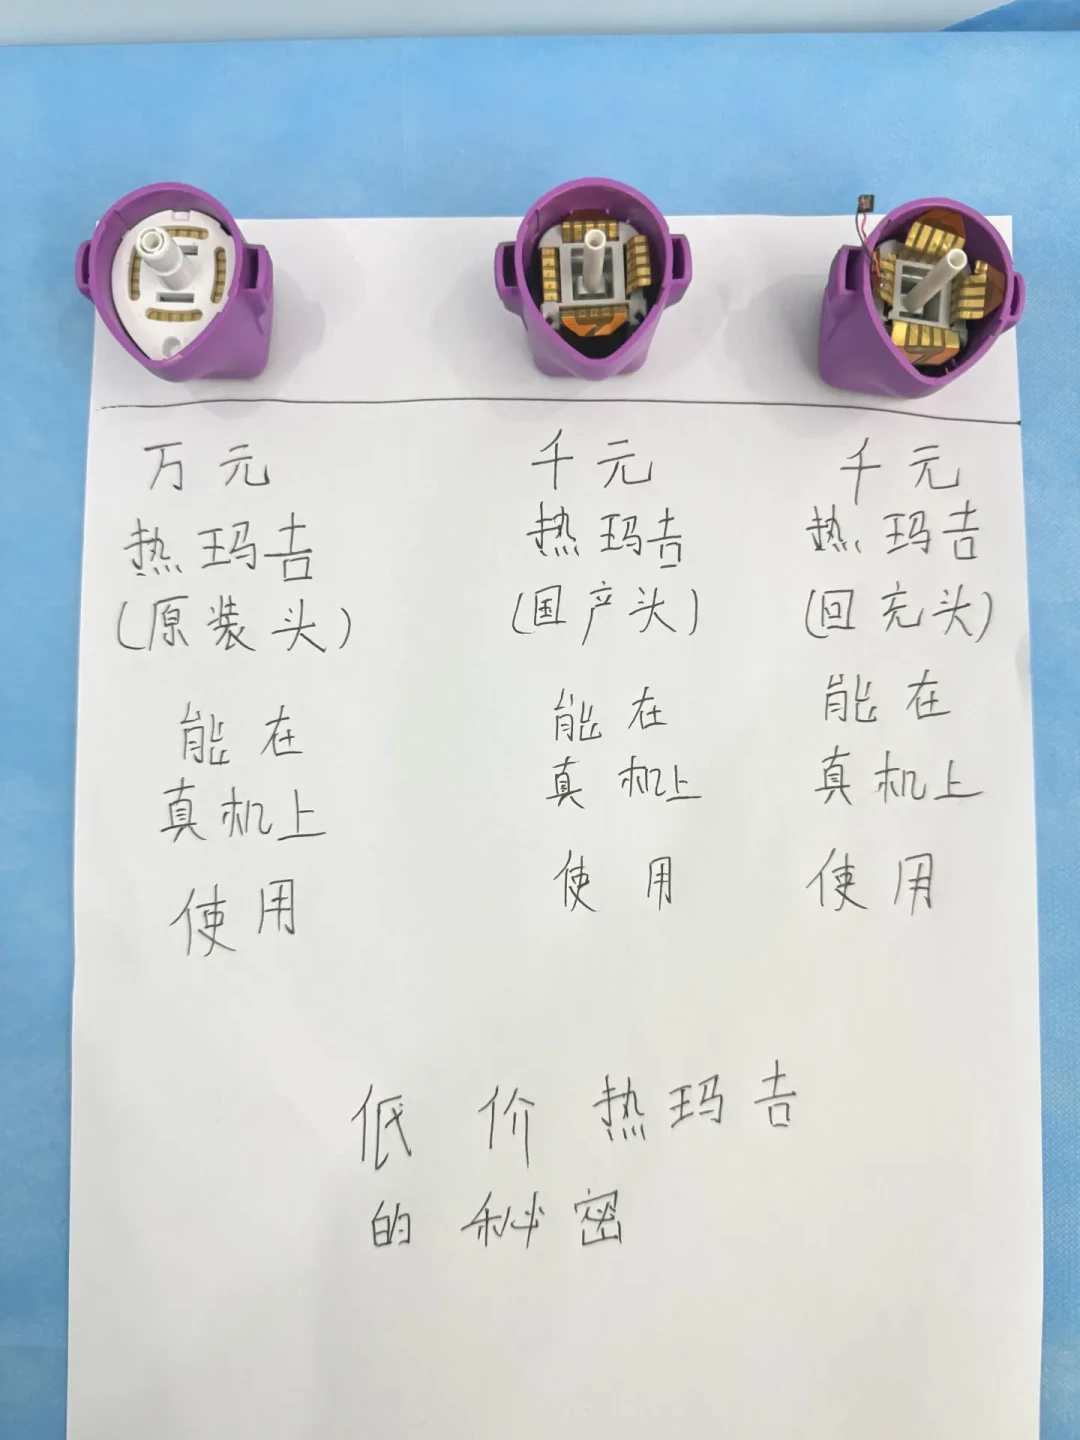 万元
热玛吉
(原装头)
能在
真机上
使用
千元
热玛吉
(国产头)
能在
真机上
使用
千元
热玛吉
(回充头)
能在
真机上
使用
低价热玛吉
的秘密